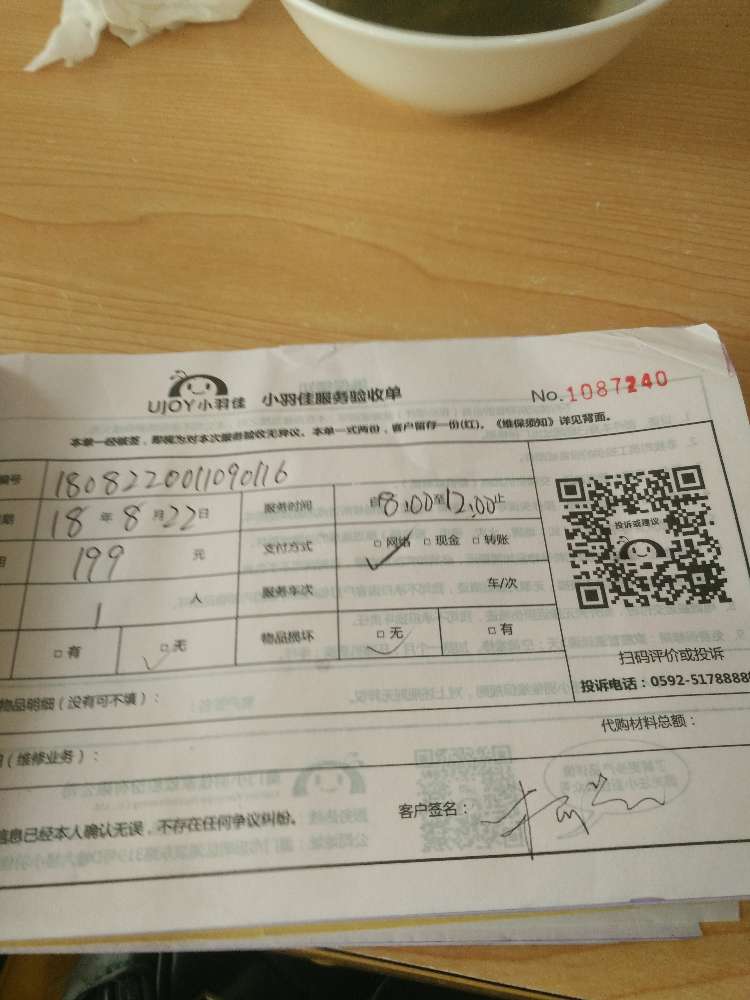 UJOY小羽佳 小羽佳服务验收单 No.1087240
本单一经签签，即视为对本次服务验收无异议。本单一式两份，客户留存一份(红)。《维保须知》详见背面。
编号 1808220011090116
期 18 年 8 月 22 日 服务时间 自 8:00 至 12:00 止
用 199 元 支付方式 □ 网络 □ 现金 □ 转账
1 人 服务车次 车/次
□ 有 □ 无 物品损坏 □ 无 □ 有
投诉或建议
扫码评价或投诉
投诉电话：0592-5178888
物品明细（没有可不填）：
代购材料总额：
（维修业务）：
信息已经本人确认无误，不存在任何争议纠纷。
客户签名：